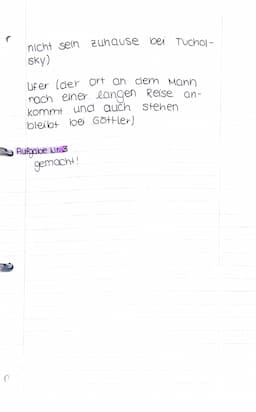 nicht sein zuhause bei Tuchol-
sky)
Ufer (der Ort an dem Mann
nach einer langen Reise an-
kommt und auch stehen
bleibt bei Göttler)
Aufgabe Nr.3
gemacht!